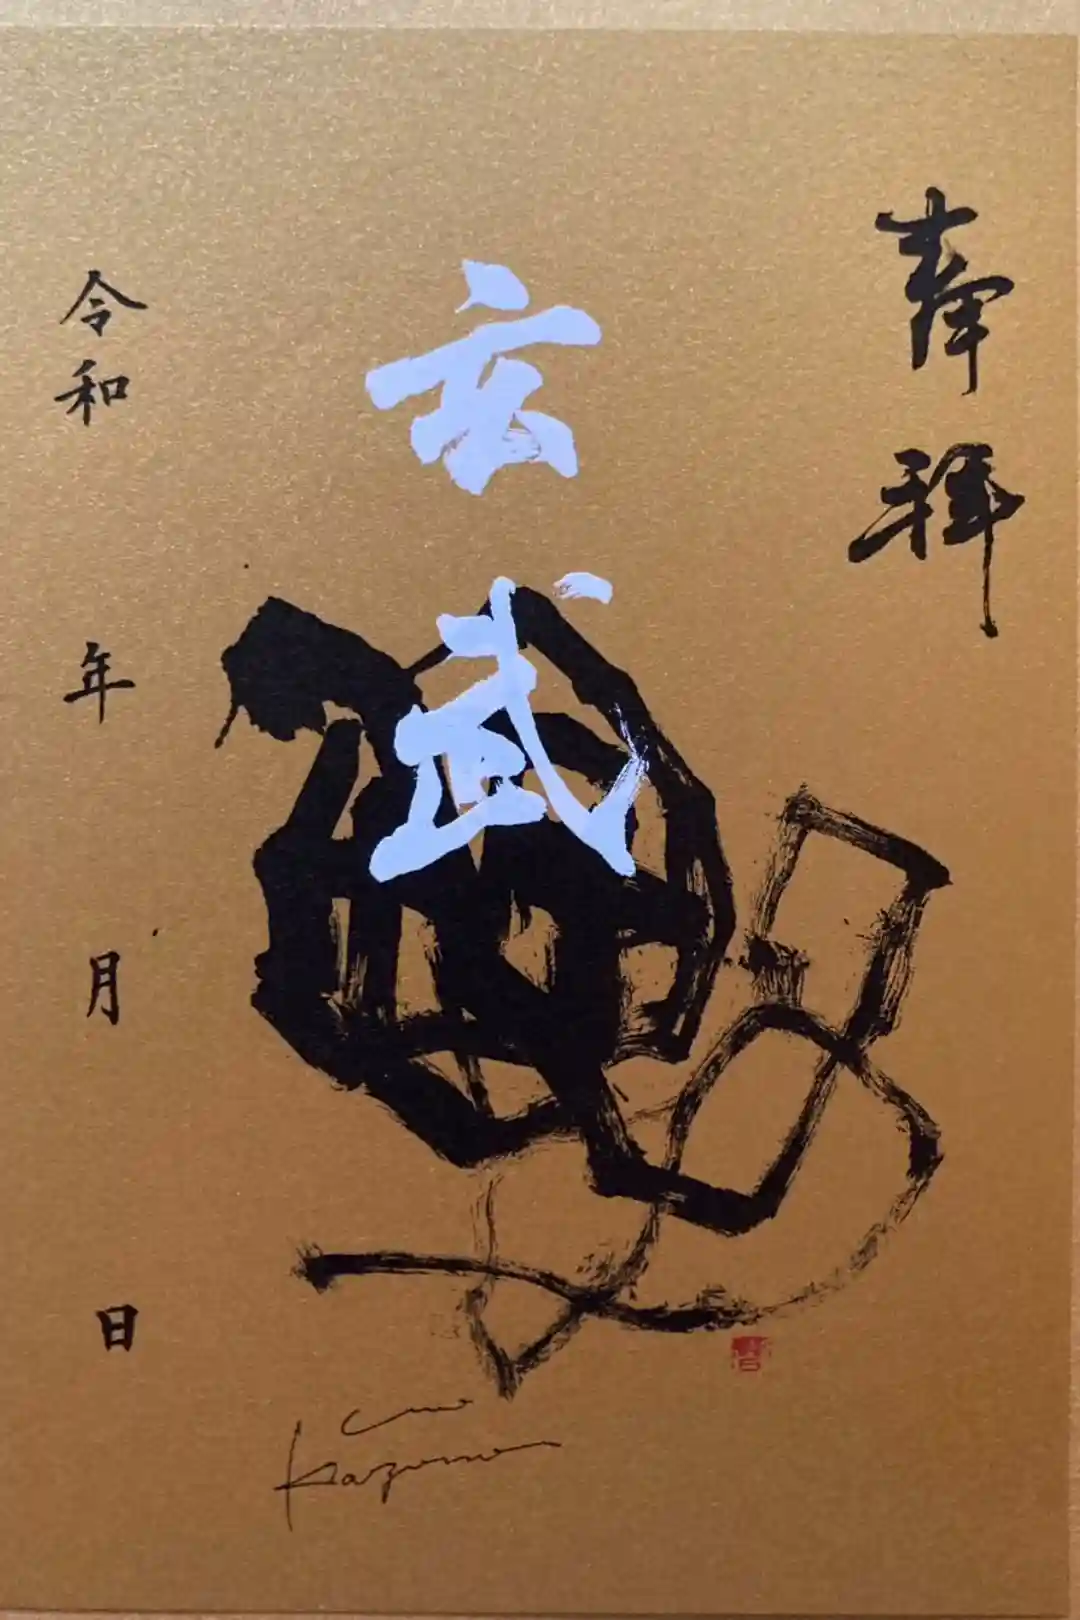 奉拝
玄武
令和 年 月 日